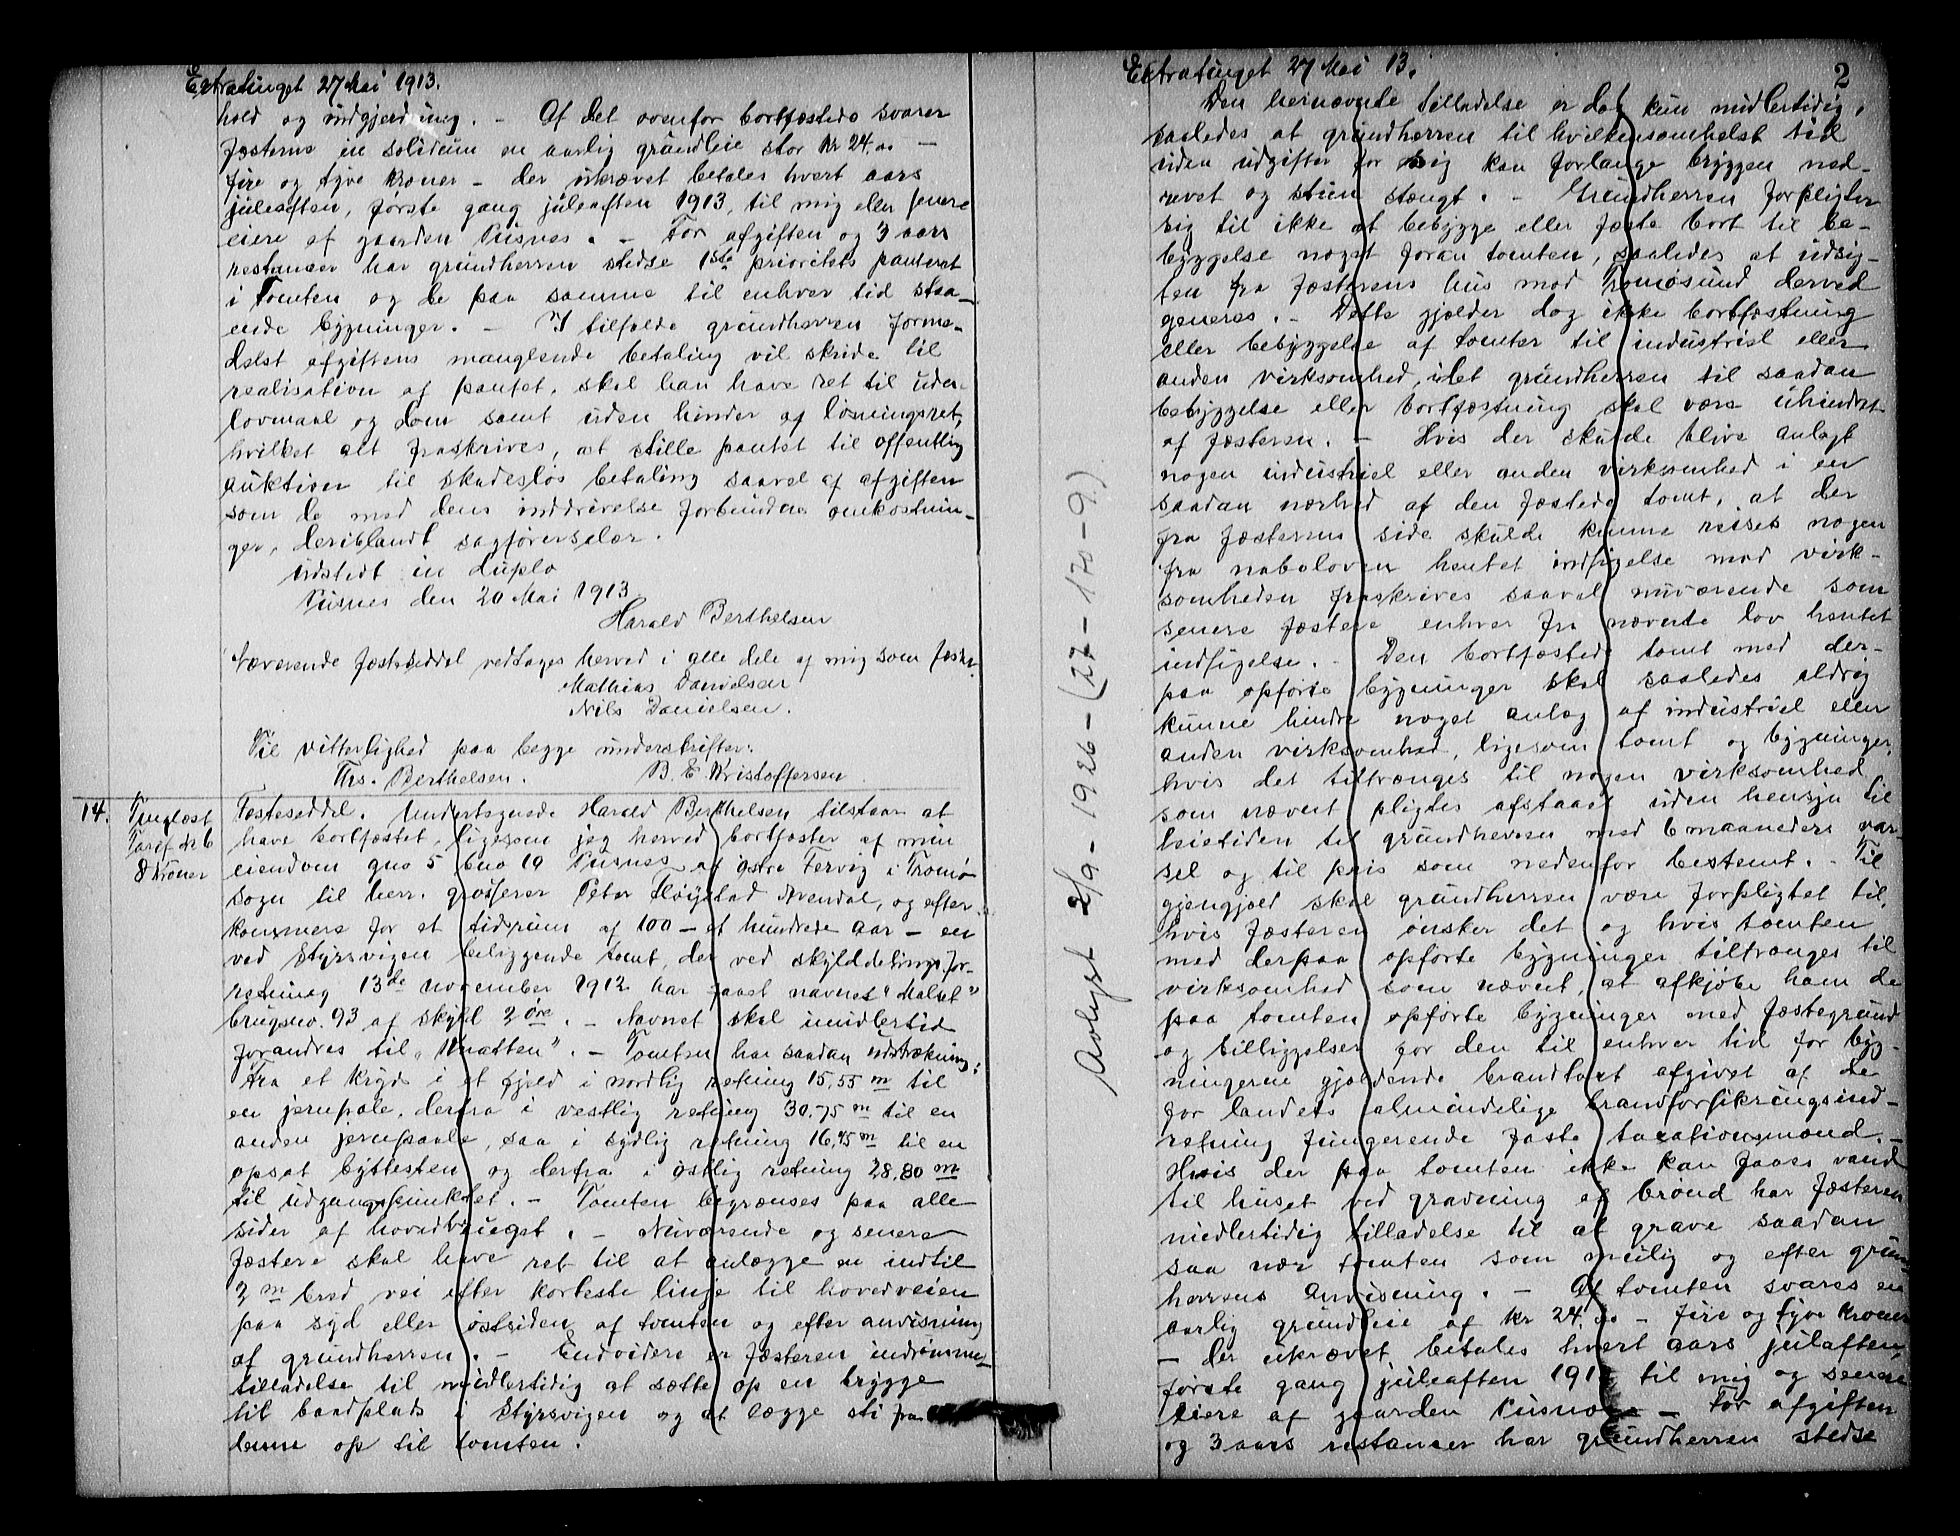 Extratinget 27 Mai 1913.
hold og indgjerdning. - Af det ovenfor bortfæstede svarer
fæsterne in solidum en aarlig grundleie stor kr 24.00 -
fire og tyve kroner - der ukrævet betales hvert aars
juleaften, første gang juleaften 1913, til mig eller senere
eiere af gaarden Pusnes. - For afgiften og 3 aars
restanser har grundherren stedse 1ste prioritets panteret
i Tomten og de paa samme til enhver tid staa-
ende bygninger. - I tilfælde grundherren forme-
delst afgiftens manglende betaling vil skride til
realisation af pantet, skal han have ret til uden
lovmaal og dom samt uden hinder af løsningsret,
hvilket alt fraskrives, at stille pantet til offentlig
auktion til skadesløs betaling saavel af afgiften
som de med dens inddrivelse forbundne omkostnin-
ger, deriblandt sagførerselær.
Udstedt in duplo
Pusnes den 20 Mai 1913
Harald Berthelsen
Nærværende fæsteseddel vedtages herved i alle dele af mig som fæster.
Mathias Danielsen
Nils Danielsen.
Til vitterlighed paa begge underskrifter:
Ths. Berthelsen. B. E. Kristoffersen
14. Tinglæst
Taref. ds 6
8 kroner
Fæsteseddel. Undertegnede Harald Berthelsen tilstaar at
have bortfæstet, ligesom jeg herved bortfæster af min
eiendom gno 5 bno 19 Pusnes af østre Fervig i Tromø
sogn til herr. grosserer Peter Fløystad Arendal, og efter-
kommere for et tidsrum af 100 - et hundrede aar - en
ved Styrsvigen beliggende tomt, der ved skylddelingsfor-
retning 13de november 1912 har faaet navnet "Malut"
brugsno. 93 af skyld 2 øre. - Navnet skal imidlertid
forandres til "Knatten". - Tomten har saadan udstrækning:
Fra et kryds i et fjeld i nordlig retning 15,55 m til
en jernpæle, derfra i vestlig retning 30,75 m til en
anden jernpaale, saa i sydlig retning 16,45 m til en
opsat byttesten og derfra i østlig retning 28,80 m
til udgangspunktet. - Tomten begrænses paa alle
sider af hovedbruget. - Nuværende og senere
fæstere skal have ret til at anlægge en indtil
2 m bred vei efter korteste linje til hovedveien
paa syd eller østsiden af tomten og efter anvisning
af grundherren. - Endvidere er fæsteren indrømmet
tilladelse til midlertidig at sætte op en brygge
til baadplads i Styrsvigen og at lægge sti fra
denne op til tomten.
Avlyst 2/9-1926-(27-170-9.)
Extratinget 27 Mai 13.
2
Den heinævnte tilladelse er dog kun midlertidig,
saaledes at grundherren til hvilkensomhelst tid
uden udgifter for sig kan forlange bryggen ned-
revet og stien stængt. - Grundherren forpligter
sig til ikke at bebygge eller fæste bort til be-
byggelse noget foran tomten, saaledes at udsig-
ten fra fæsterens hus mod Tromøsund derved
generes. - Dette gjælder dog ikke bortfæstning
eller bebyggelse af tomter til industriel eller
anden virksomhed, idet grundherren til saadan
bebyggelse eller bortfæstning skal være uhindret
af fæsteren. - Hvis der skulde blive anlagt
nogen industriel eller anden virksomhed i en
saadan nærhed af den fæstede tomt, at der
fra fæsterens side skulde kunne reises nogen
fra naboloven hentet indsigelse mod virk-
somheden fraskrives saavel nuværende som
senere fæstere enhver fra nævnte lov hentet
indsigelse. - Den bortfæstede tomt med der-
paa opførte bygninger skal saaledes aldrig
kunne hindre noget anlæg af industriel eller
anden virksomhed, ligesom tomt og bygninger,
hvis det tiltrænges til nogen virksomhed
som nævnt pligtes afstaaet uden hensyn til
leietiden til grundherren med 6 maaneders var-
sel og til pris som nedenfor bestemt. - Til
gjengjæld skal grundherren være forpligtet til,
hvis fæsteren ønsker det og hvis tomten
med derpaa opførte bygninger tiltrænges til
virksomhed som nævnt, at afkjøbe ham de
paa tomten opførte bygninger med fæstegrund
og billiggelser for den til enhver tid for byg-
ningerne gjældende brandtaxt afgivet af de
for landets almindelige brandforsikringsind-
retning fungerende faste taxationsmænd. -
Hvis der paa tomten ikke kan faaes vand
til huset ved gravning af brønd har fæsteren
midlertidig tilladelse til at grave saadan
saa nær tomten som mulig og efter grund-
herrens anvisning. - Af tomten svares en
aarlig grundleie af kr 24.00 - fire og tyve kroner
- der ukrævet betales hvert aars juleaften,
første gang juleaften 191 til mig og senere
eiere af gaarden Pusnes - For afgiften
og 3 aars restanser har grundherren stedse